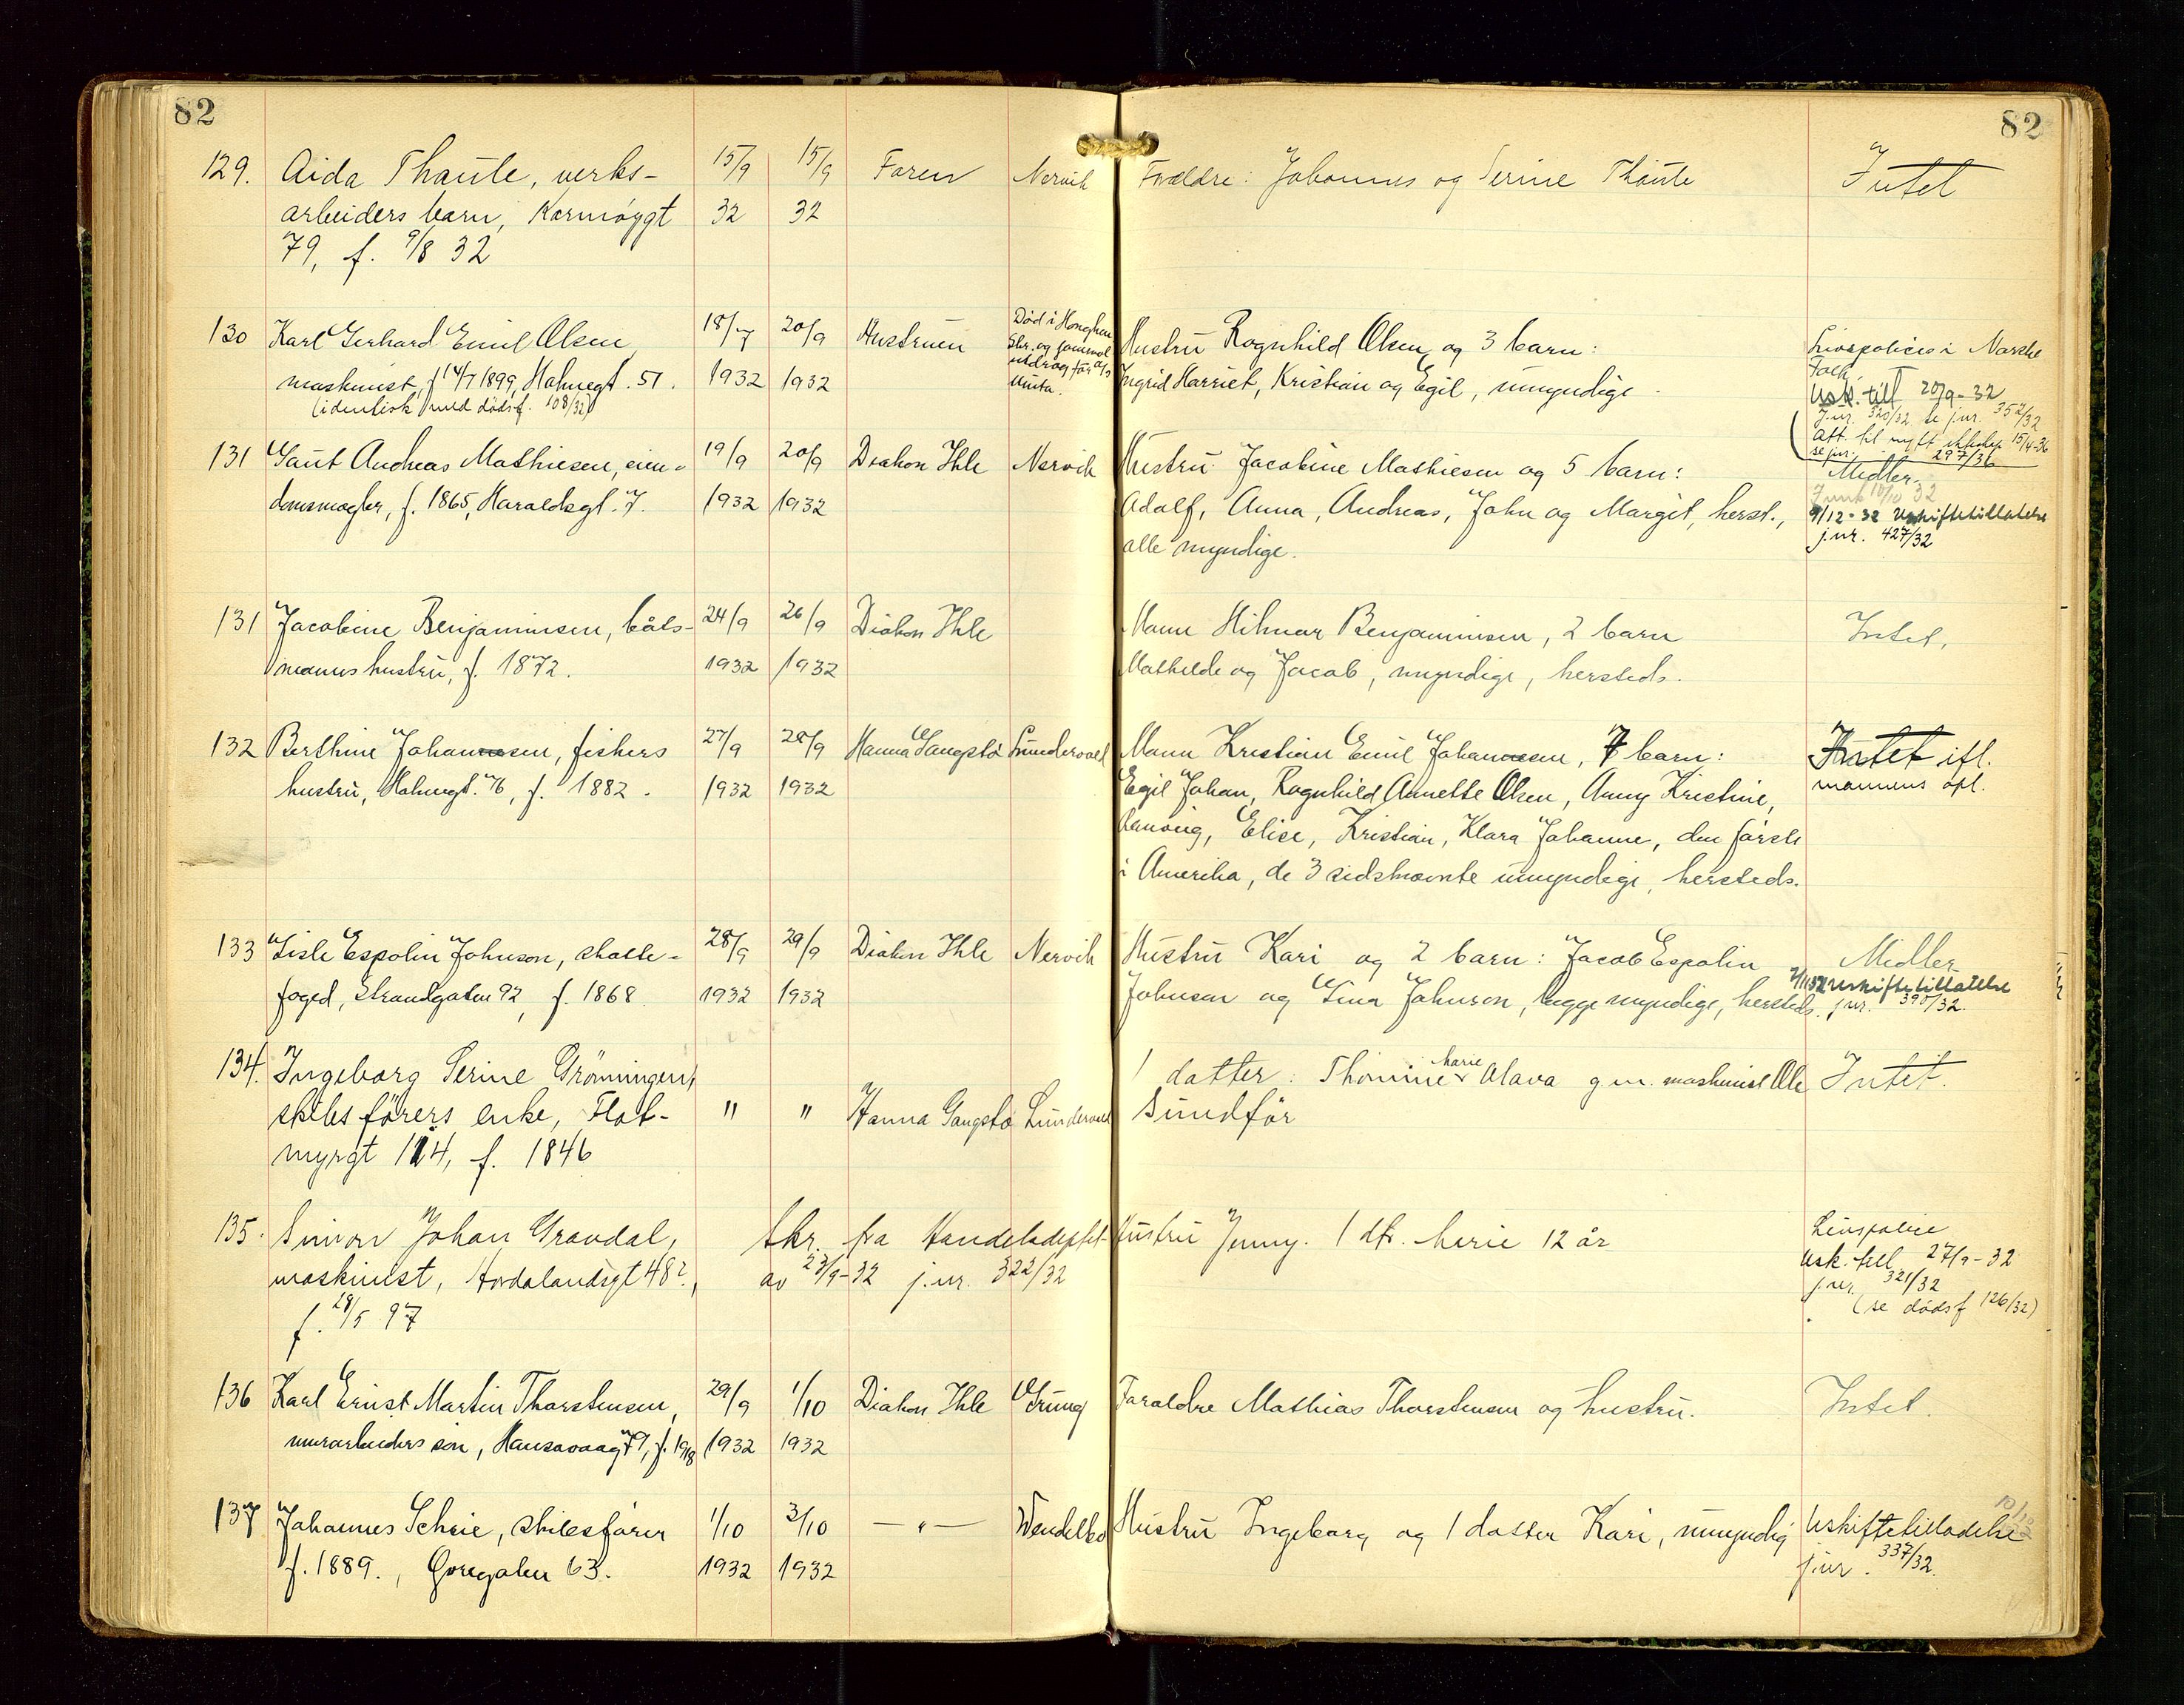 82
82
129. Aida Thaule, verks- 15/9 15/9 Faren Nervik Forældre: Johannes og Serine Thaule Intet
arbeiders barn, Karmøygt 32 32
79, f. 9/8 32
130 Karl Gerhard Emil Olsen 18/7 20/9 Hustruen Død i Hongkong Hustru Ragnhild Olsen og 3 barn: Livspolice i Norske
Skr. og gammal Folk
maskinist, f 14/7 1899, Haknegt. 51. 1932 1932 utdrag for a/s Ingrid Harriet, Kristian og Egil, umyndige Usk. till 20/9-32
(identisk med dødsf. 108/32) Unita. j.nr. 320/32 se jnr. 352/32
Att. til nytt ekteskap 15/4-36
se jnr. 297/36
131 Gaut Andreas Mathiesen, eien- 19/9 20/9 Diakon Ihle Nervik Hustru Jacobine Mathiesen og 5 barn: Midler.
domsmægler, f. 1865, Haraldsgt. 7. 1932 1932 Adolf, Anna, Andreas, John og Margit, herst., 9/12-32 Uskiftetillatelse
alle myndige. j.nr. 427/32
131 Jacobine Benjaminsen, båts- 24/9 26/9 Diakon Ihle Mann Hilmar Benjaminsen, 2 barn Intet,
manns hustru, f. 1872. 1932 1932 Mathilde og Jacob, myndige, hersteds.
132 Berthine Johannesen, fiskers 27/9 28/9 Hanna Gangstø Lundevall Mann Kristian Emil Johannesen, 7 barn: Intet ifl.
hustru, Haknegt. 76, f. 1882. 1932 1932 Egil Johan, Ragnhild Annette Olsen, Anny Kristine, mannens opl.
Elise, Kristian, Klara Johanne, den første
i Amerika, de 3 sidstnævnte umyndige, hersteds.
133 Gisle Espolin Johnson, skatte- 28/9 29/9 Diakon Ihle Nervik Hustru Kari og 2 barn: Jacob Espolin Midler
foged, Strandgaten 92, f. 1868 1932 1932 Johnson og Gina Johnson, begge myndige, hersteds. Uskiftetillatelse
j.nr. 390/32.
134. Ingeborg Serine Grønningen, 1 datter: Thomine Marie Olava g.m. maskinist Ole Intet.
skibsførers enke, Flot- " " Hanna Gangstø Lundevall Sundfør
myrgt 124, f. 1846
135. Simon Johan Gravdal, Skr. fra Handelsdeptet Hustru Jenny. 1 dtr. Merie 12 år Livspolice
maskinist, Hordalandsgt 48?, av 23/9-32 j.nr. 322/32 Usk. till 27/9-32
f. 28/5 97 j.nr. 321/32
(se dødsf 126/32)
136 Karl Ernst Martin Thorstensen, 29/9 1/10 Diakon Ihle Grung Foraldre Mathias Thorstensen og hustru. Intet.
murarbeiders søn, Hansavaagt 79, f. 1918 1932 1932
137 Johannes Scheie, skibsfører 1/10 3/10 — " — Wendelbo Hustru Ingeborg og 1 datter Kari, umyndig Uskiftetilladelse
f. 1889., Øvregaten 63. 1932 1932 j.nr. 337/32.